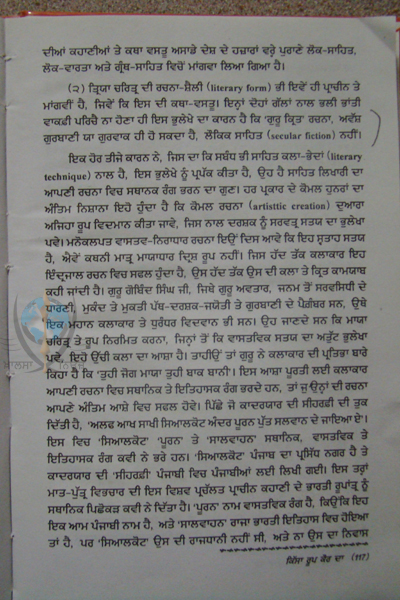 ਦੀਆਂ ਕਹਾਣੀਆਂ ਤੇ ਕਥਾ ਵਸਤੂ ਅਸਾਡੇ ਦੇਸ਼ ਦੇ ਹਜ਼ਾਰਾਂ ਵਰ੍ਹੇ ਪੁਰਾਣੇ ਲੋਕ-ਸਾਹਿਤ,
ਲੋਕ-ਵਾਰਤਾ ਅਤੇ ਗ੍ਰੰਥ-ਸਾਹਿਤ ਵਿਚੋਂ ਮਾਂਗਵਾ ਲਿਆ ਗਿਆ ਹੈ।
(੨) ਤ੍ਰਿਯਾ ਚਰਿਤ੍ਰ ਦੀ ਰਚਨਾ-ਸ਼ੈਲੀ (literary form) ਭੀ ਇਵੇਂ ਹੀ ਪ੍ਰਾਚੀਨ ਤੇ
ਮਾਂਗਵੀਂ ਹੈ, ਜਿਵੇਂ ਕਿ ਇਸ ਦੀ ਕਥਾ-ਵਸਤੂ। ਇਨ੍ਹਾਂ ਦੋਹਾਂ ਗੱਲਾਂ ਨਾਲ ਭਲੀ ਭਾਂਤੀ
ਵਾਕਫ਼ੀ ਪਰਿਚੈ ਨਾ ਹੋਣਾ ਹੀ ਇਸ ਭੁਲੇਖੇ ਦਾ ਕਾਰਨ ਹੈ ਕਿ 'ਗੁਰੂ ਕ੍ਰਿਤ' ਰਚਨਾ, ਅਵੱਸ਼
ਗੁਰਬਾਣੀ ਯਾ ਗੁਰਵਾਕ ਹੀ ਹੋ ਸਕਦਾ ਹੈ, ਲੌਕਿਕ ਸਾਹਿਤ (secular fiction) ਨਹੀਂ।
ਇਕ ਹੋਰ ਤੀਜੇ ਕਾਰਨ ਨੇ, ਜਿਸ ਦਾ ਕਿ ਸਬੰਧ ਭੀ ਸਾਹਿਤ ਕਲਾ-ਭੇਦਾਂ (literary
technique) ਨਾਲ ਹੈ, ਇਸ ਭੁਲੇਖੇ ਨੂੰ ਪ੍ਰਪੱਕ ਕੀਤਾ ਹੈ, ਉਹ ਹੈ ਸਾਹਿਤ ਲਿਖਾਰੀ ਦਾ
ਆਪਣੀ ਰਚਨਾ ਵਿਚ ਸਥਾਨਕ ਰੰਗ ਭਰਨ ਦਾ ਗੁਣ। ਹਰ ਪ੍ਰਕਾਰ ਦੇ ਕੋਮਲ ਹੁਨਰਾਂ ਦਾ
ਅੰਤਿਮ ਨਿਸ਼ਾਨਾ ਇਹੋ ਹੁੰਦਾ ਹੈ ਕਿ ਕੋਮਲ ਰਚਨਾ (artisttic creation) ਦੁਆਰਾ
ਅਜਿਹਾ ਰੂਪ ਵਿਦਮਾਨ ਕੀਤਾ ਜਾਵੇ, ਜਿਸ ਨਾਲ ਦਰਸ਼ਕ ਨੂੰ ਸਰਵਤ੍ਰ ਸਤਯ ਦਾ ਭੁਲੇਖਾ
ਪਵੇ। ਮਨੋਕਲਪਤ ਵਾਸਤਵ-ਨਿਰਾਧਾਰ ਰਚਨਾ ਇਉਂ ਦਿਸ ਆਵੇ ਕਿ ਇਹ ਸ੍ਵਤਾਹ ਸਤਯ
ਹੈ, ਐਵੇਂ ਕਥਨੀ ਮਾਤ੍ਰ ਮਾਯਾਧਾਰ ਦ੍ਰਿਸ਼ ਰੂਪ ਨਹੀਂ। ਜਿਸ ਹੱਦ ਤੱਕ ਕਲਾਕਾਰ ਇਹ
ਇੰਦ੍ਰਜਾਲ ਰਚਨ ਵਿਚ ਸਫਲ ਹੁੰਦਾ ਹੈ, ਉਸ ਹੱਦ ਤੱਕ ਉਸ ਦੀ ਕਲਾ ਤੇ ਕ੍ਰਿਤ ਕਾਮਯਾਬ
ਕਹੀ ਜਾਂਦੀ ਹੈ। ਗੁਰੂ ਗੋਬਿੰਦ ਸਿੰਘ ਜੀ, ਜਿਥੇ ਗੁਰੂ ਅਵਤਾਰ, ਜਨਮ ਤੋਂ ਸਰਵਸਿਧੀ ਦੇ
ਧਾਰਣੀ, ਮੁਕੰਦ ਤੇ ਮੁਕਤੀ ਪੱਥ-ਦਰਸ਼ਕ-ਜਯੋਤੀ ਤੇ ਗੁਰਬਾਣੀ ਦੇ ਪੈਗ਼ੰਬਰ ਸਨ, ਉਥੇ
ਇਕ ਮਹਾਨ ਕਲਾਕਾਰ ਤੇ ਧੁਰੰਧਰ ਵਿਦਵਾਨ ਭੀ ਸਨ। ਉਹ ਜਾਣਦੇ ਸਨ ਕਿ ਮਾਯਾ
ਚਰਿਤ੍ਰ ਤੇ ਰੂਪ ਨਿਰਮਿਤ ਕਰਨਾ, ਜਿਨ੍ਹਾਂ ਤੋਂ ਕਿ ਵਾਸਤਵਿਕ ਸਤਯ ਦਾ ਅਤੁੱਟ ਭੁਲੇਖਾ
ਪਵੇ, ਇਹ ਉੱਚੀ ਕਲਾ ਦਾ ਆਸ਼ਾ ਹੈ। ਤਾਹੀਓਂ ਤਾਂ ਗੁਰੂ ਨੇ ਕਲਾਕਾਰ ਦੀ ਪ੍ਰਤਿਭਾ ਬਾਰੇ
ਕਿਹਾ ਹੈ ਕਿ 'ਤੁਹੀ ਜੋਗ ਮਾਯਾ ਤੁਹੀ ਬਾਕ ਬਾਨੀ'। ਇਸ ਆਸ਼ਾ ਪੂਰਤੀ ਲਈ ਕਲਾਕਾਰ
ਆਪਣੀ ਰਚਨਾ ਵਿਚ ਸਥਾਨਿਕ ਤੇ ਇਤਿਹਾਸਕ ਰੰਗ ਭਰਦੇ ਹਨ, ਤਾਂ ਜੁ ਉਨ੍ਹਾਂ ਦੀ ਰਚਨਾ
ਆਪਣੇ ਅੰਤਿਮ ਆਸ਼ੇ ਵਿਚ ਸਫਲ ਹੋਵੇ। ਪਿੱਛੇ ਜੋ ਕਾਦਰਯਾਰ ਦੀ ਸੀਹਰਫ਼ੀ ਦੀ ਤੁਕ
ਦਿੱਤੀ ਹੈ, 'ਅਲਫ ਆਖ ਸਾਖੀ ਸਿਆਲਕੋਟ ਅੰਦਰ ਪੂਰਨ ਪੁੱਤ ਸਲਵਾਨ ਦੇ ਜਾਇਆ ਏ'।
ਇਸ ਵਿਚ 'ਸਿਆਲਕੋਟ' 'ਪੂਰਨ' ਤੇ 'ਸਾਲਵਾਹਨ' ਸਥਾਨਿਕ, ਵਾਸਤਵਿਕ ਤੇ
ਇਤਿਹਾਸਕ ਰੰਗ ਕਵੀ ਨੇ ਭਰੇ ਹਨ। 'ਸਿਆਲਕੋਟ' ਪੰਜਾਬ ਦਾ ਪ੍ਰਸਿੱਧ ਨਗਰ ਹੈ ਤੇ
ਕਾਦਰਯਾਰ ਦੀ 'ਸੀਹਰਫ਼ੀ' ਪੰਜਾਬੀ ਵਿਚ ਪੰਜਾਬੀਆਂ ਲਈ ਲਿਖੀ ਗਈ। ਇਸ ਤਰ੍ਹਾਂ
ਮਾਤ-ਪੁੱਤ੍ਰ ਵਿਭਚਾਰ ਦੀ ਇਸ ਵਿਸ਼ਵ ਪ੍ਰਚੱਲਤ ਪ੍ਰਾਚੀਨ ਕਹਾਣੀ ਦੇ ਭਾਰਤੀ ਰੂਪਾਂਤ੍ਰ ਨੂੰ
ਸਥਾਨਿਕ ਪਿਛੋਕੜ ਕਵੀ ਨੇ ਦਿੱਤਾ ਹੈ। 'ਪੂਰਨ' ਨਾਮ ਵਾਸਤਵਿਕ ਰੰਗ ਹੈ, ਕਿਉਂਕਿ ਇਹ
ਇਕ ਆਮ ਪੰਜਾਬੀ ਨਾਮ ਹੈ, ਅਤੇ 'ਸਾਲਵਾਹਨ' ਰਾਜਾ ਭਾਰਤੀ ਇਤਿਹਾਸ ਵਿਚ ਹੋਇਆ
ਤਾਂ ਹੈ, ਪਰ 'ਸਿਆਲਕੋਟ' ਉਸ ਦੀ ਰਾਜਧਾਨੀ ਨਹੀਂ ਸੀ, ਅਤੇ ਨਾ ਉਸ ਦਾ ਨਿਵਾਸ
ਕਿੱਸਾ ਰੂਪ ਕੌਰ ਦਾ (117)